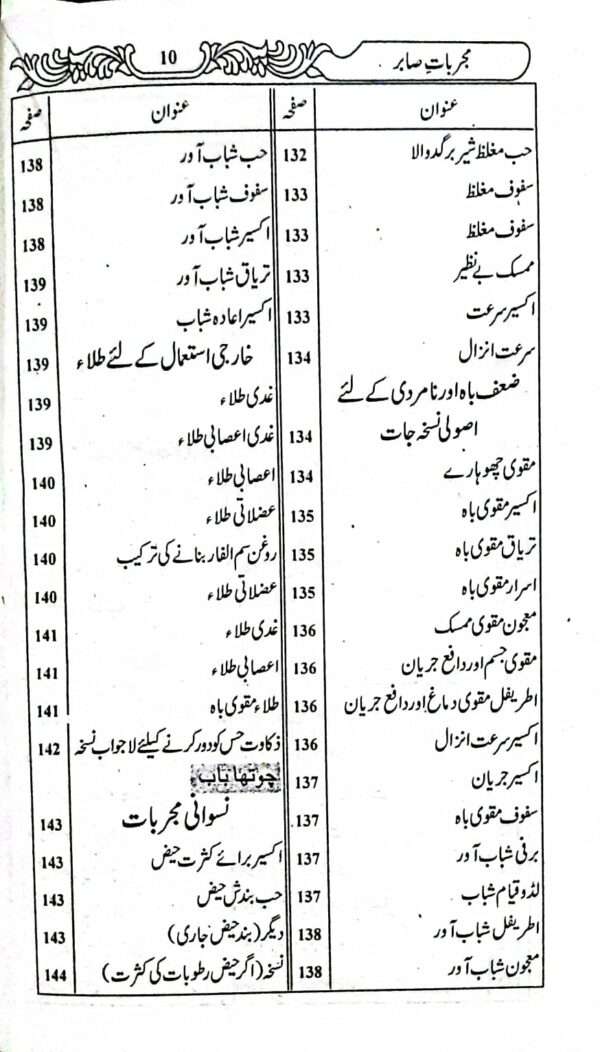 مجربات صابر
10
عنوان صفحہ
حب مغلظ شیر برگد والا 132
سفوف مغلظ 133
سفوف مغلظ 133
ممسک بے نظیر 133
اکسیر سرعت 133
سرعت انزال 134
ضعف باہ اور نامردی کے لئے
اصولی نسخہ جات 134
مقوی چھوہارے 134
اکسیر مقوی باہ 135
تریاق مقوی باہ 135
اسرار مقوی باہ 135
معجون مقوی ممسک 136
مقوی جسم اور دافع جریان 136
اطریفل مقوی دماغ اور دافع جریان 136
اکسیر سرعت انزال 136
اکسیر جریان 137
سفوف مقوی باہ 137
برفی شباب آور 137
لڈو قیام شباب 137
اطریفل شباب آور 138
معجون شباب آور 138
عنوان صفحہ
حب شباب آور 138
سفوف شباب آور 138
اکسیر شباب آور 138
تریاق شباب آور 139
اکسیر اعادہ شباب 139
خارجی استعمال کے لئے طلاء 139
غدی طلاء 139
غدی اعصابی طلاء 139
اعصابی طلاء 140
عضلاتی طلاء 140
روغن سم الفار بنانے کی ترکیب 140
عضلاتی طلاء 140
غدی طلاء 141
اعصابی طلاء 141
طلاء مقوی باہ 141
ذکاوت حس کو دور کرنے کیلئے لاجواب نسخہ 142
چوتھا باب
نسوانی مجربات 143
اکسیر برائے کثرت حیض 143
حب بندش حیض 143
دیگر (بند حیض جاری) 143
نسخہ (اگر حیض رطوبات کی کثرت) 144